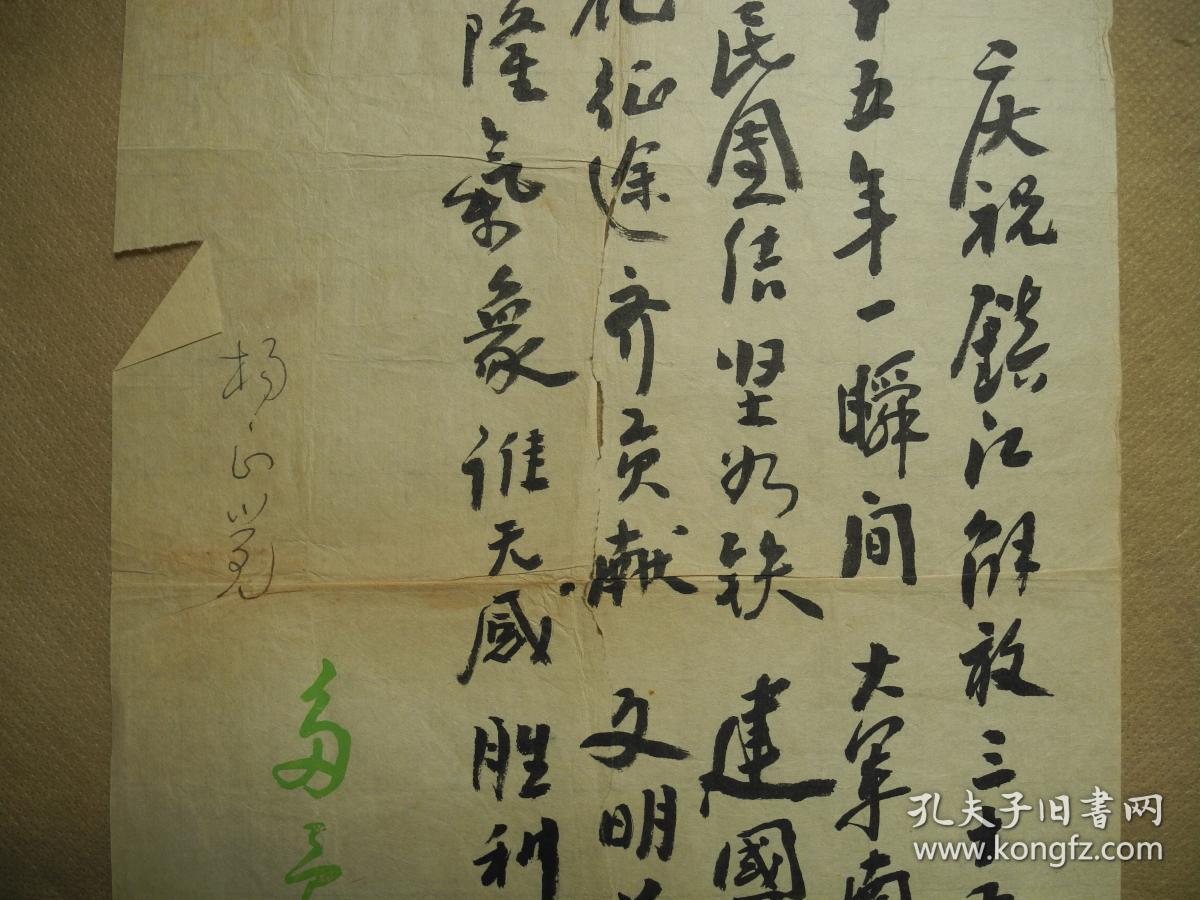 庆祝鎮江解放三十五
十五年一瞬间 大军南
民團结坚如铁 建國
化征途齐贡献 文明
隆氣象谁无感 胜利
杨
孔夫子旧书网
www.kongfz.com